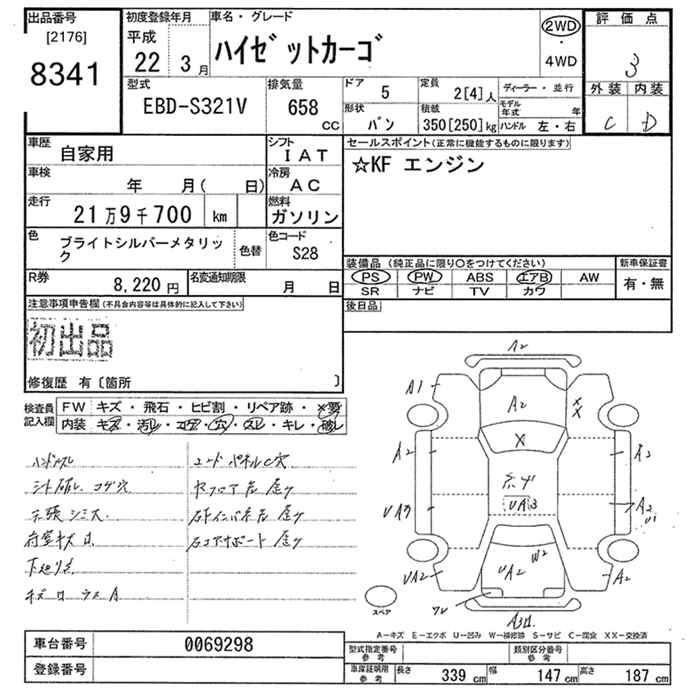 出品番号
[2176]
8341
初度登録年月
平成
22 3月
車名・グレード
ハイゼットカーゴ
2WD
・
4WD
評価点
3
外装 内装
C D
型式
EBD-S321V
排気量
658
cc
ドア
5
定員
2[4]人
ディーラー・並行
形状
バン
積載
350[250]kg
モデル年式 年
ハンドル 左・右
車歴
自家用
シフト
IAT
車検
年 月( 日)
冷房
AC
走行
21万9千700 km
燃料
ガソリン
色
ブライトシルバーメタリック
色替
色コード
S28
R券
8,220円
名変通知期限
月 日
セールスポイント(正常に機能するものに限ります)
☆KF エンジン
装備品 (純正品に限り○をつけてください)
PS PW ABS エアB AW
SR ナビ TV カワ
新車保証書
有・無
後日品
注意事項申告欄(不具合内容等は具体的に記入して下さい)
初出品
修復歴 有〔箇所 〕
検査員
記入欄
FW キズ・飛石・ヒビ割・リペア跡・×要
内装 キズ・汚レ・コゲ・穴・スレ・キレ・破レ
シート破レ コゲ穴
天張シミス
荷室キズ
下廻り
A2
A1
A2
A2
X
UA3
A2
A2
U1
W2
UA2
UA2
A2
スペア
A-キズ E-エクボ U-凹み W-補修跡 S-サビ C-腐食 XX-交換済
車台番号
0069298
登録番号
型式指定番号
参考
類別区分番号
参考
車庫証明用
参考
長さ 339 cm
幅 147 cm
高さ 187 cm